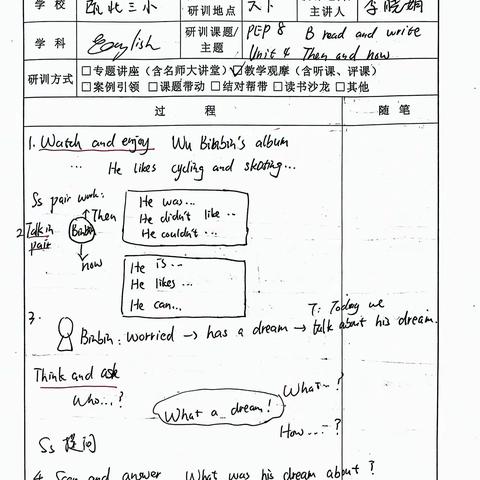 学校 瓯北三小 研训地点 主讲人 李晓娟
学科 English 研训课题/主题 PEP 8 B read and write
Unit 4 Then and now
研训方式 □专题讲座（含名师大讲堂）☑教学观摩（含听课、评课）
□案例引领 □课题带动 □结对帮带 □读书沙龙 □其他
过 程 随 笔
1. Watch and enjoy Wu Binbin's album
... He likes cycling and skating...
Ss pair work:
He was...
↑Then
He didn't like ...
2 Talk in pair
Binbin
He couldn't ...
↓now
He is ...
He likes ...
He can...
3.
T: Today we
Binbin: worried → has a dream → talk about his dream.
Think and ask
What...?
Who...?
What a dream!
How...?
Ss 提问
4. Scan and answer What was his dream about?